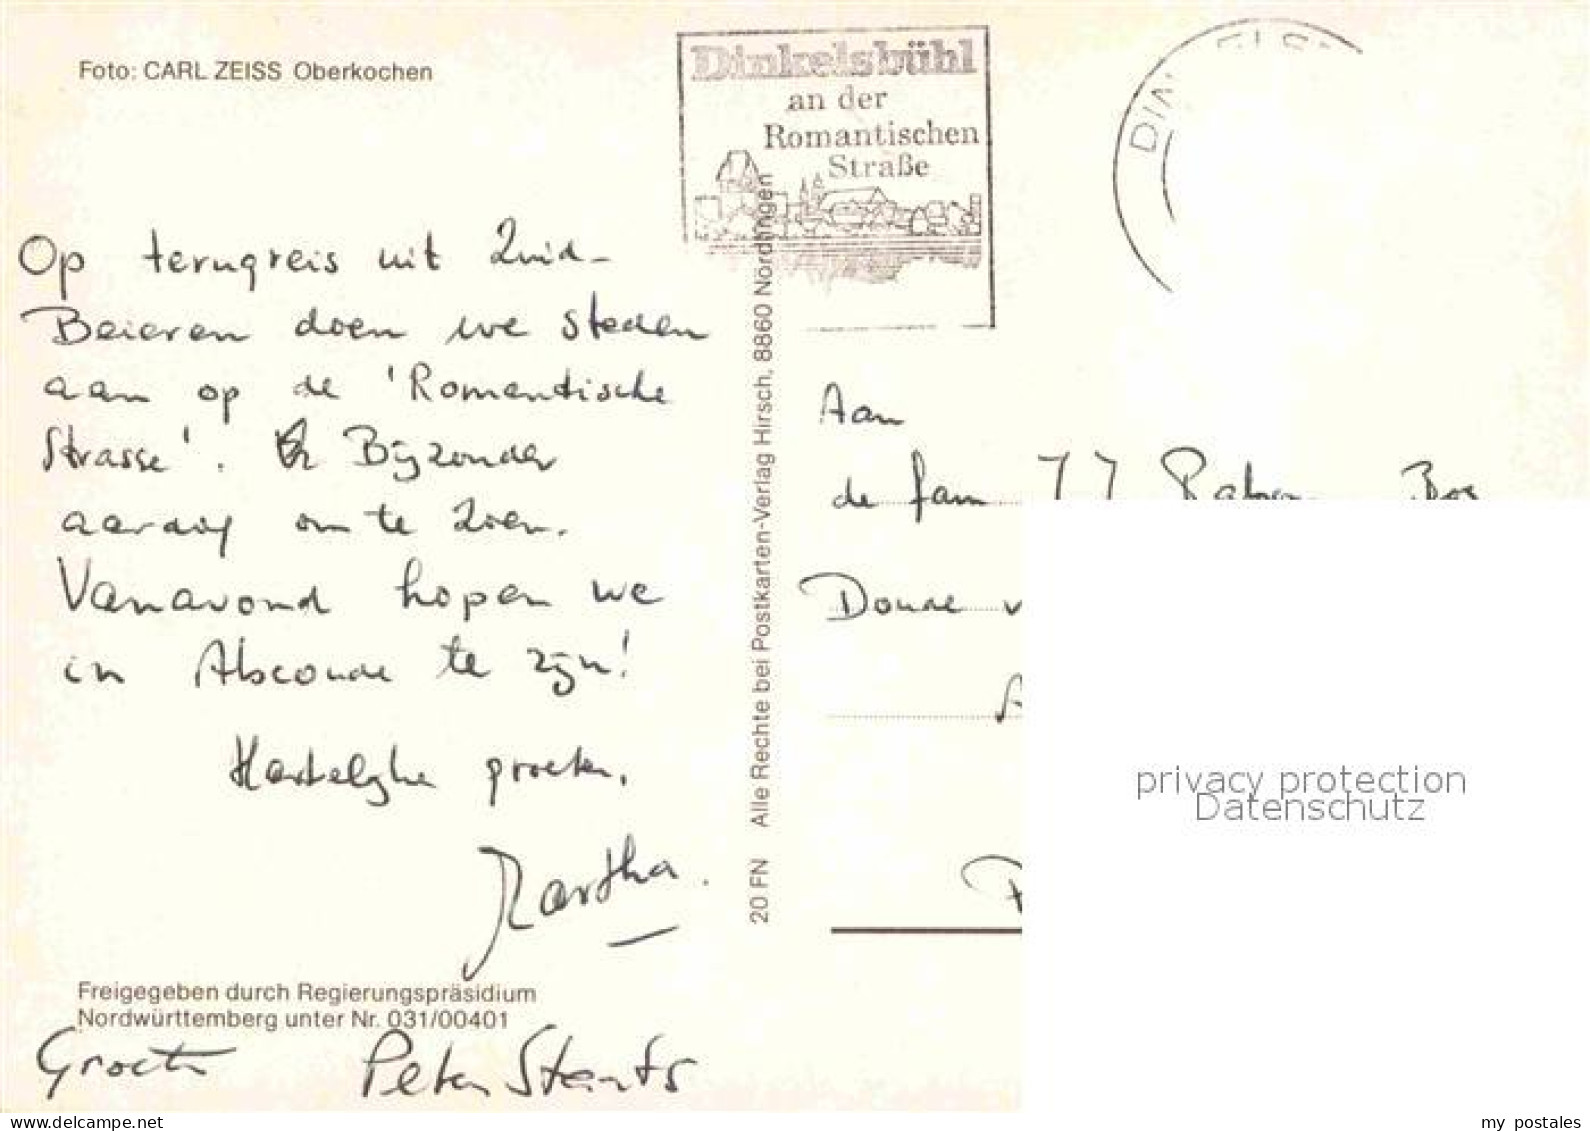 Foto: CARL ZEISS Oberkochen
Dinkelsbühl
an der
Romantischen
Straße
Op terugreis uit Zuid-
Beieren doen we steden
aan op de 'Romantische
Strasse'. Bijzonder
aardig om te zien.
Vanavond hopen we
in Abcoude te zijn!
Hartelijke groeten,
Martha.
Freigegeben durch Regierungspräsidium
Nordwürttemberg unter Nr. 031/00401
Groeten Peter
20 FN Alle Rechte bei Postkarten-Verlag Hirsch, 8860 Nördlingen
Aan
de fam
privacy protection
Datenschutz
my postales